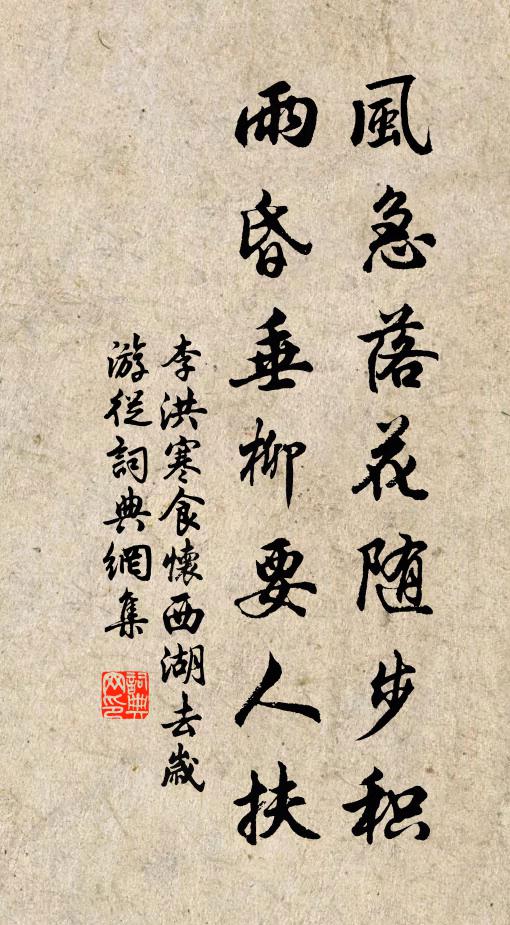 風急落花随步积
雨昏垂柳要人扶
李洪寒食懷西湖去歲
游從詞典網集
詞典网印